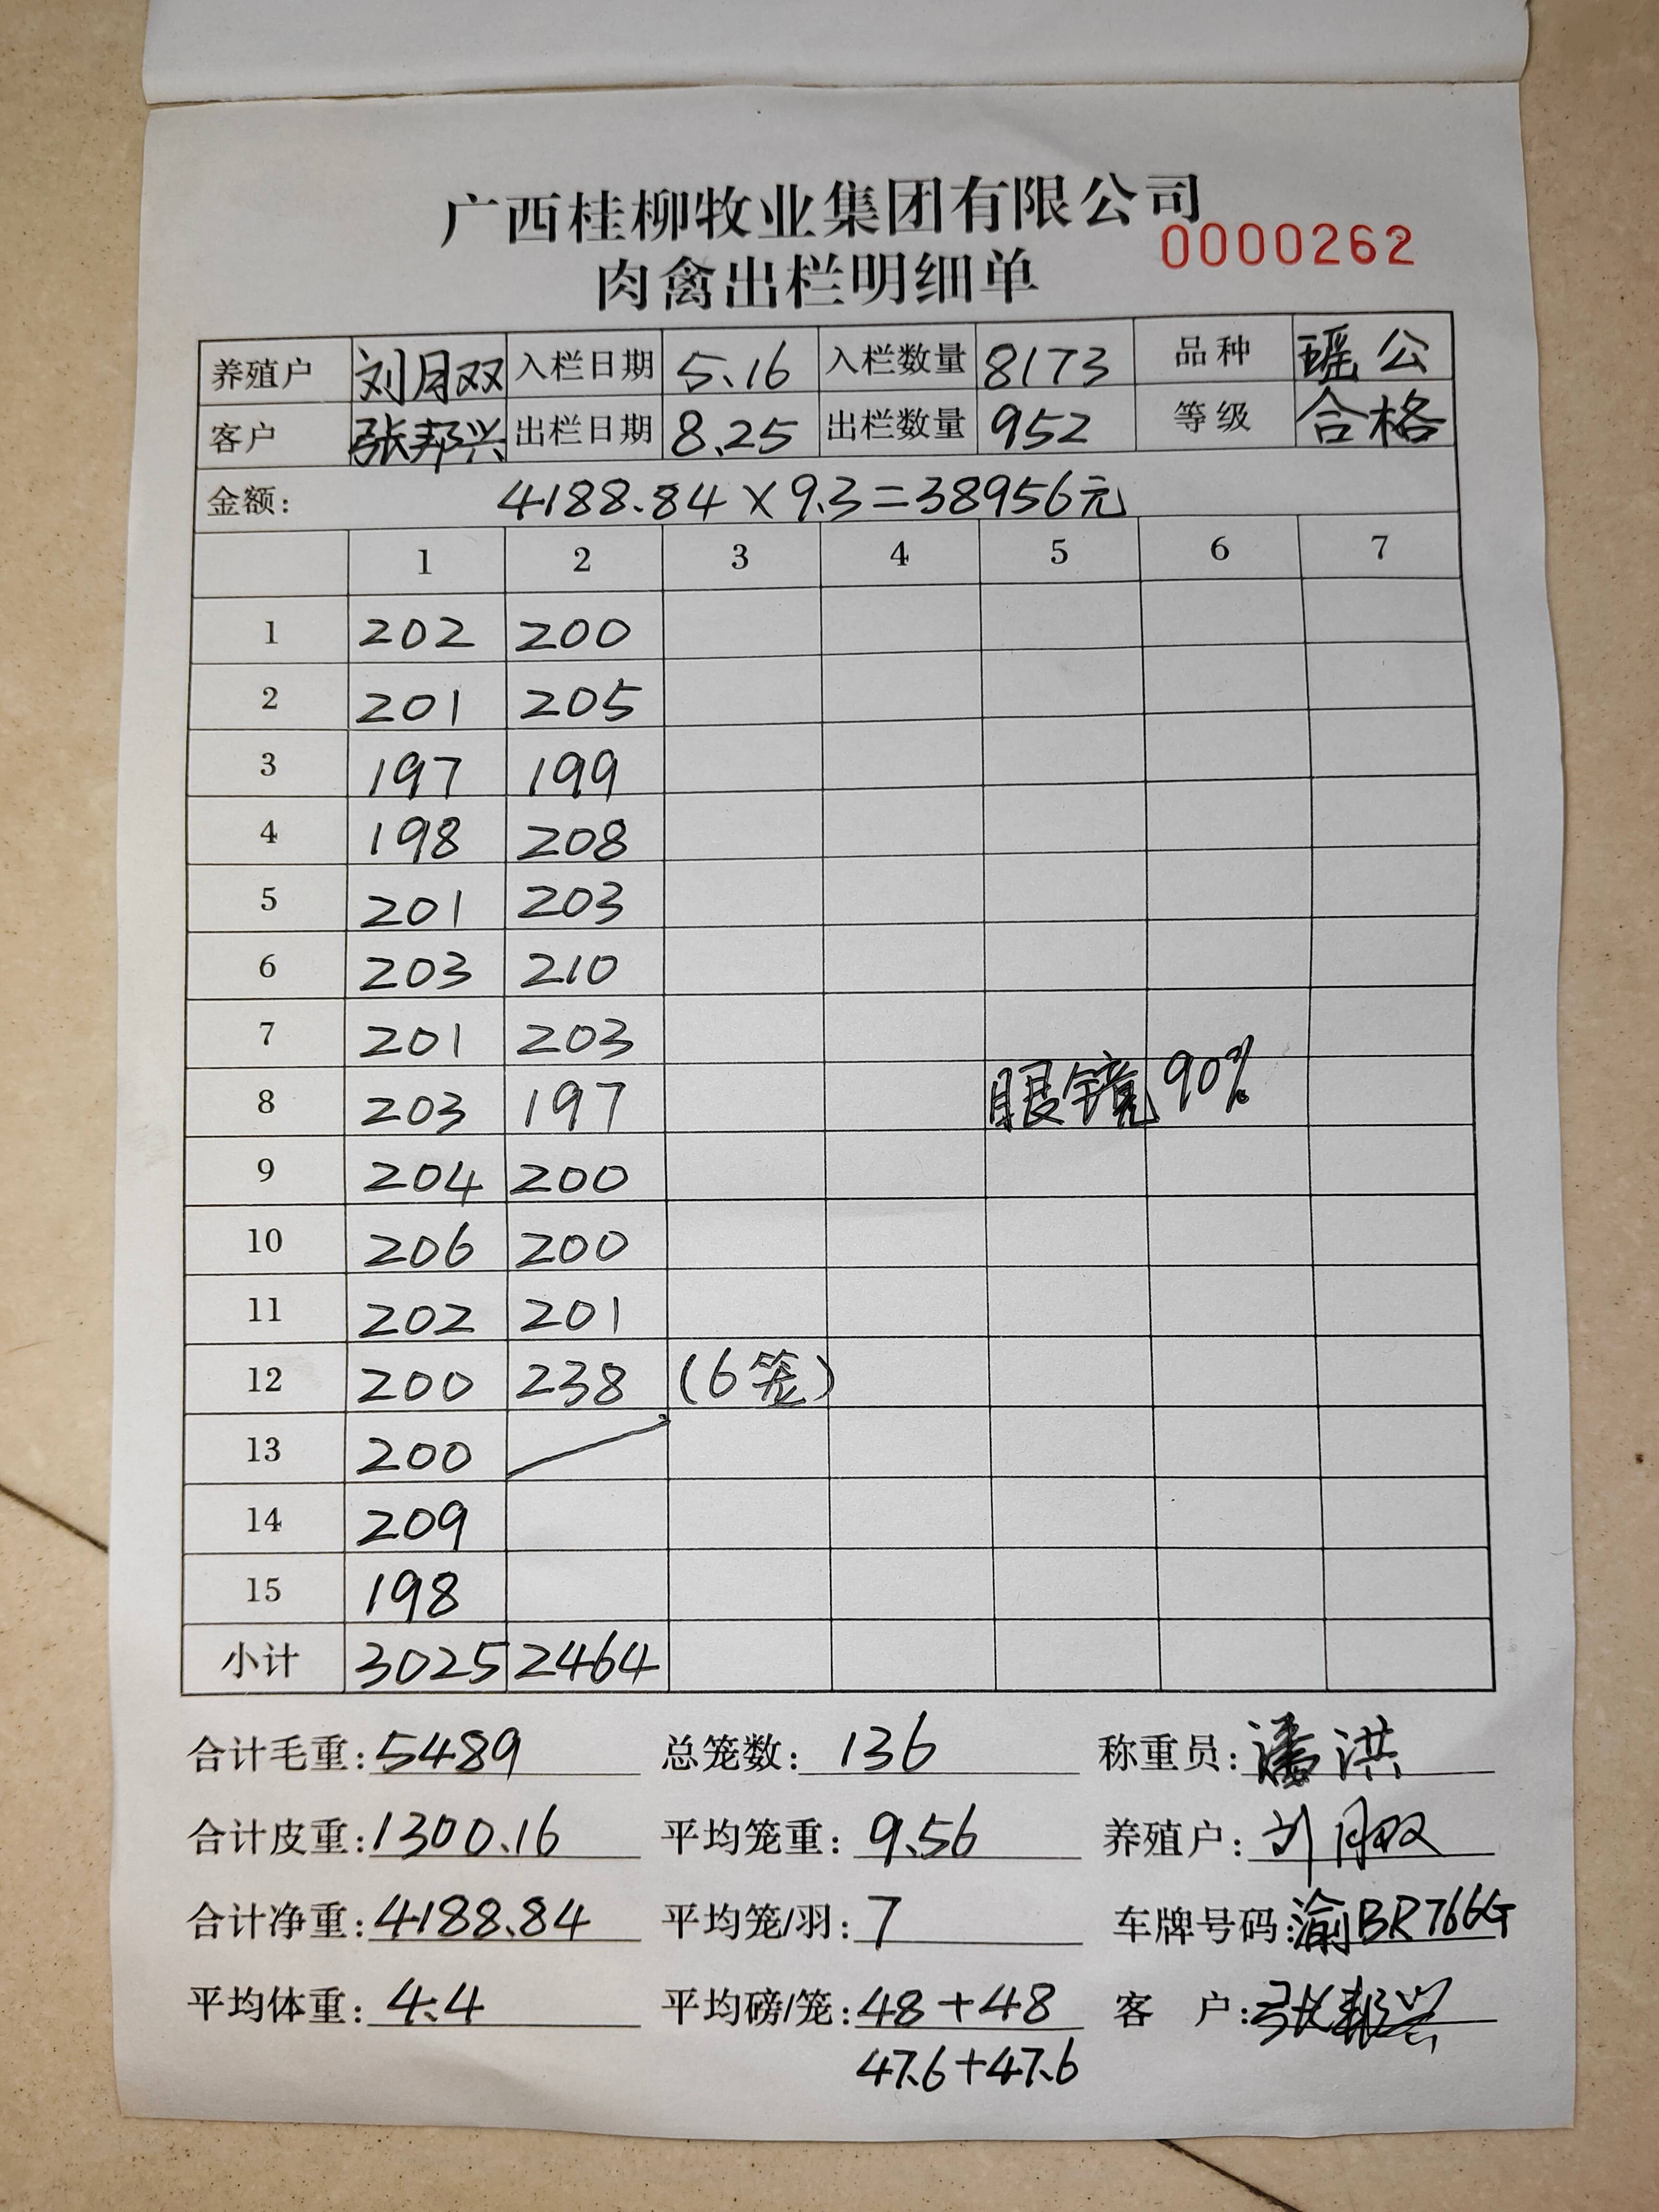 广西桂柳牧业集团有限公司
0000262
肉禽出栏明细单
养殖户 刘月双 入栏日期 5.16 入栏数量 8173 品种 瑶公
客户 张邦兴 出栏日期 8.25 出栏数量 952 等级 合格
金额: 4188.84×9.3=38956元
1 2 3 4 5 6 7
1 202 200
2 201 205
3 197 199
4 198 208
5 201 203
6 203 210
7 201 203
8 203 197 眼镜90%
9 204 200
10 206 200
11 202 201
12 200 238 (6笼)
13 200
14 209
15 198
小计 3025 2464
合计毛重:5489 总笼数:136 称重员:潘洪
合计皮重:1300.16 平均笼重:9.56 养殖户:刘月双
合计净重:4188.84 平均笼/羽:7 车牌号码:渝BR766G
平均体重:4.4 平均磅/笼:48+48 客户:张邦兴
47.6+47.6